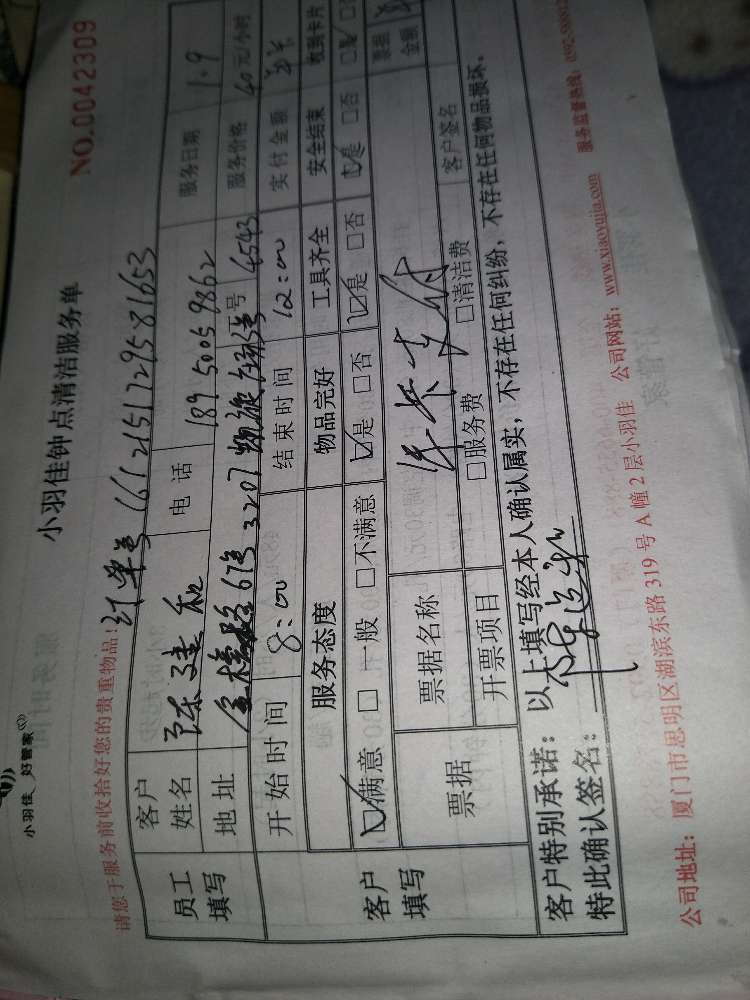 小羽佳 好管家
小羽佳钟点清洁服务单
NO.0042309
请您于服务前收拾好您的贵重物品!
订单号 1612151729581653
员工填写 客户姓名 陈建和 电话 18950059862 服务日期 1.9
地址 67号 3207 号 4543 服务价格 40元/小时
开始时间 8:00 结束时间 12:00 实付金额
客户填写 服务态度 物品完好 工具齐全 安全结束 收到卡片
☑满意 □一般 □不满意 ☑是 □否 ☑是 □否 ☑是 □否
票据 票据名称 年卡支付 票据金额
开票项目 □服务费 □清洁费 客户签名
客户特别承诺:以上填写经本人确认属实,不存在任何纠纷,不存在任何物品损坏。
特此确认签名:
公司地址:厦门市思明区湖滨东路319号A幢2层小羽佳 公司网站:www.xiaoyujia.com 服务监督热线: